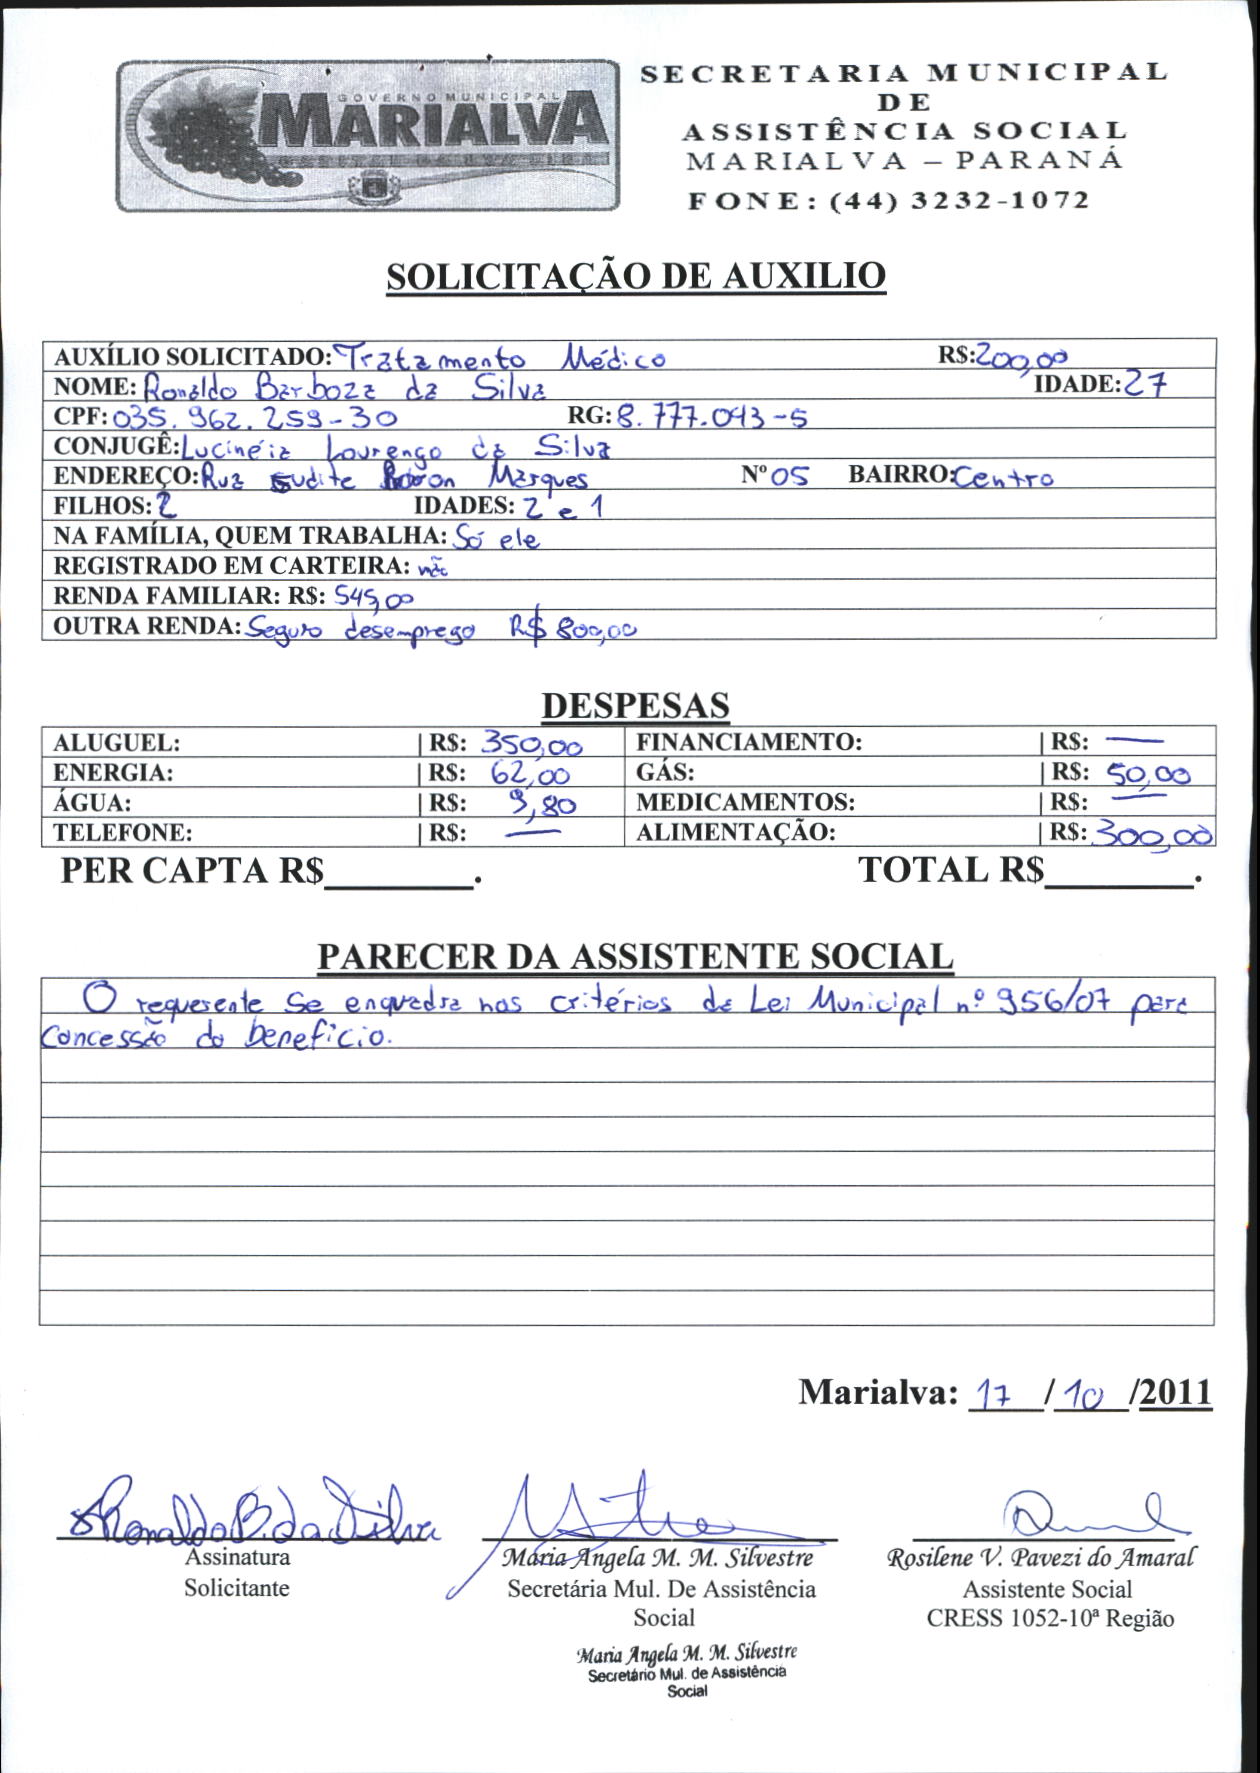 GOVERNO MUNICIPAL
MARIALVA
SECRETARIA MUNICIPAL
DE
ASSISTÊNCIA SOCIAL
MARIALVA – PARANÁ
FONE: (44) 3232-1072
SOLICITAÇÃO DE AUXILIO
AUXÍLIO SOLICITADO: Tratamento Médico R$: 200,00
NOME: Ronaldo Barboza da Silva IDADE: 27
CPF: 035.962.259-30 RG: 8.777.043-5
CONJUGÊ: Lucinéia Lourenço da Silva
ENDEREÇO: Rua Marques Nº 05 BAIRRO: Centro
FILHOS: 2 IDADES: 2 e 1
NA FAMÍLIA, QUEM TRABALHA: Só ele
REGISTRADO EM CARTEIRA: não
RENDA FAMILIAR: R$: 545,00
OUTRA RENDA: Seguro desemprego R$ 800,00
DESPESAS
ALUGUEL: | R$: 350,00 FINANCIAMENTO: | R$: —
ENERGIA: | R$: 62,00 GÁS: | R$: 50,00
ÁGUA: | R$: 9,80 MEDICAMENTOS: | R$: —
TELEFONE: | R$: — ALIMENTAÇÃO: | R$: 300,00
PER CAPTA R$________. TOTAL R$________.
PARECER DA ASSISTENTE SOCIAL
O requerente se enquadra nos critérios da Lei Municipal nº 956/07 para
concessão do benefício.
Marialva: 17 / 10 /2011
Ronaldo B. da Silva
Assinatura
Solicitante
Maria Angela M. M. Silvestre
Secretária Mul. De Assistência
Social
Maria Angela M. M. Silvestre
Secretário Mul. de Assistência
Social
Rosilene V. Pavezi do Amaral
Assistente Social
CRESS 1052-10ª Região